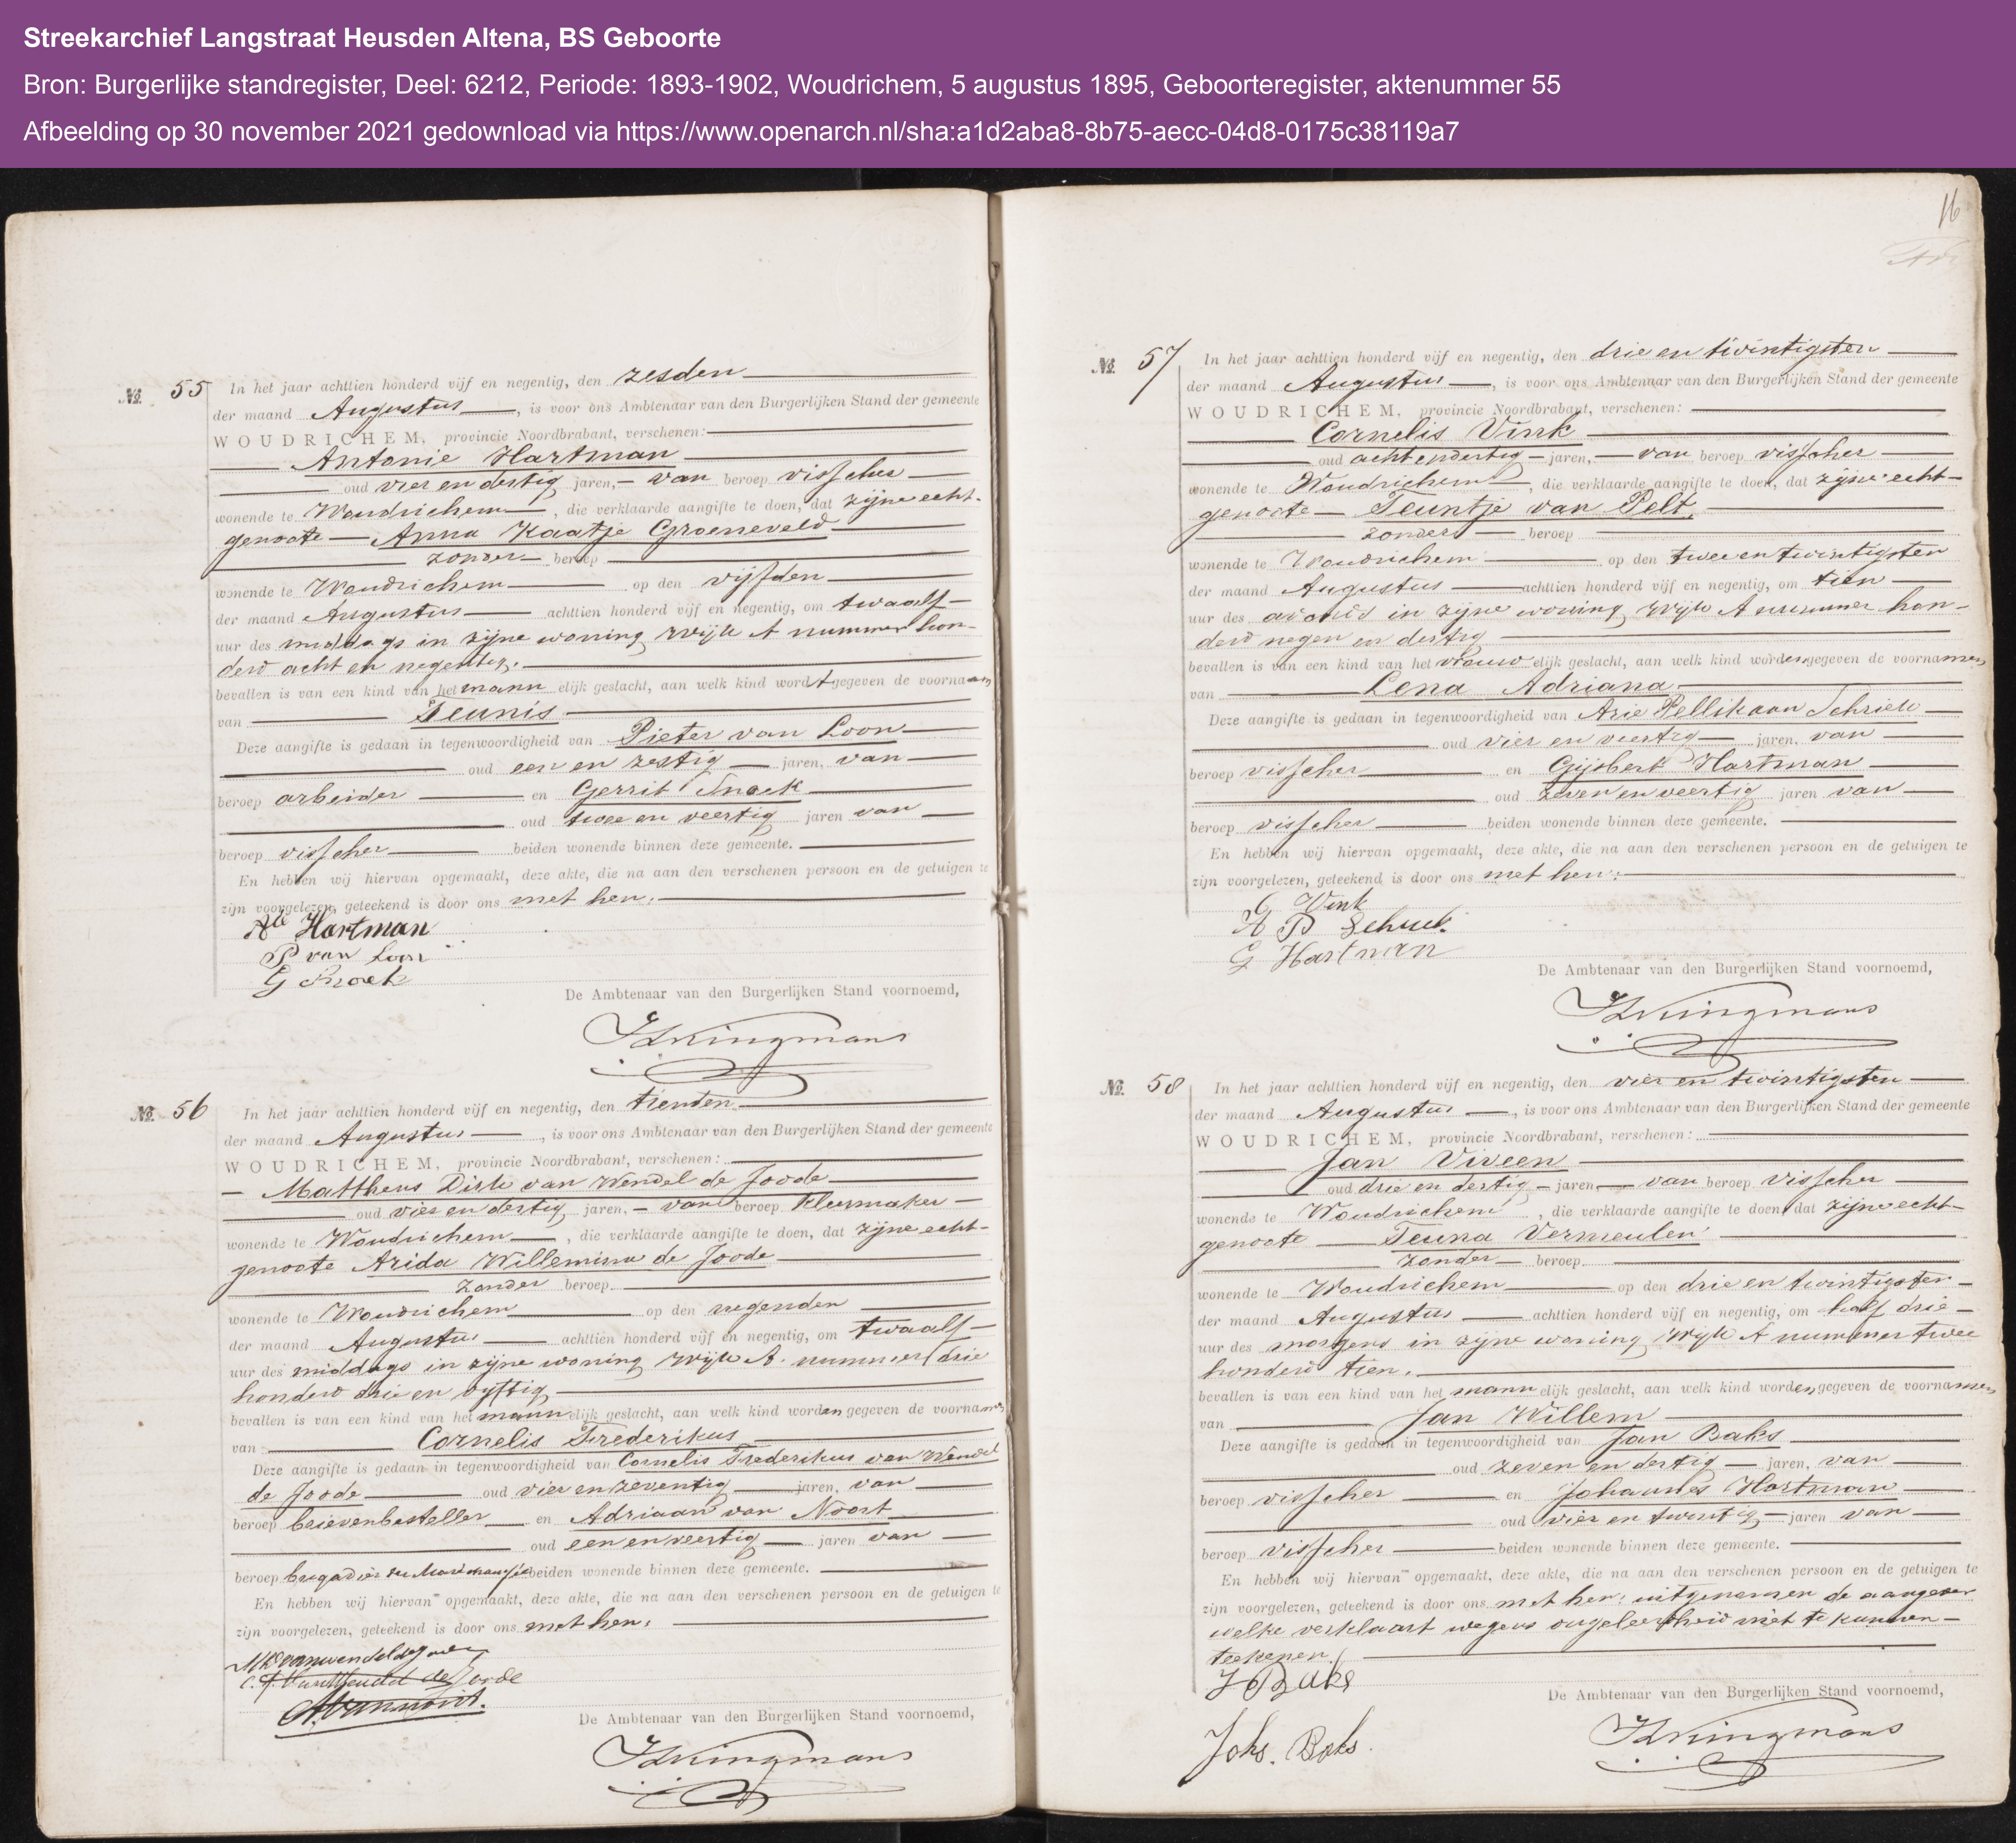 Streekarchief Langstraat Heusden Altena, BS Geboorte
Bron: Burgerlijke standregister, Deel: 6212, Periode: 1893-1902, Woudrichem, 5 augustus 1895, Geboorteregister, aktenummer 55
Afbeelding op 30 november 2021 gedownload via https://www.openarch.nl/sha:a1d2aba8-8b75-aecc-04d8-0175c38119a7
No. 55 In het jaar achttien honderd vijf en negentig, den zesden
der maand Augustus, is voor ons Ambtenaar van den Burgerlijken Stand der gemeente
WOUDRICHEM, provincie Noordbrabant, verschenen:
Antonie Hartman
oud vier en dertig jaren, van beroep visscher
wonende te Woudrichem, die verklaarde aangifte te doen, dat zijne echt-
genoote Anna Kaatje Groeneveld
zonder beroep
wonende te Woudrichem op den vijfden
der maand Augustus achttien honderd vijf en negentig, om twaalf
uur des middags in zijne woning wijk A nummer hon-
derd acht en negentig.
bevallen is van een kind van het mannelijk geslacht, aan welk kind wordt gegeven de voornaam
van Teunis
Deze aangifte is gedaan in tegenwoordigheid van Pieter van Loon
oud een en zestig jaren, van
beroep arbeider en Gerrit Snoek
oud twee en veertig jaren van
beroep visscher beiden wonende binnen deze gemeente.
En hebben wij hiervan opgemaakt, deze akte, die na aan den verschenen persoon en de getuigen te
zijn voorgelezen, geteekend is door ons met hen.
Hartman
P van Loon
G Snoek
De Ambtenaar van den Burgerlijken Stand voornoemd,
Kningmans
No. 56 In het jaar achttien honderd vijf en negentig, den tienden
der maand Augustus, is voor ons Ambtenaar van den Burgerlijken Stand der gemeente
WOUDRICHEM, provincie Noordbrabant, verschenen:
Mattheus Dirk van Wendel de Joode
oud vier en dertig jaren, van beroep kleermaker
wonende te Woudrichem, die verklaarde aangifte te doen, dat zijne echt-
genoote Arida Willemina de Joode
zonder beroep
wonende te Woudrichem op den negenden
der maand Augustus achttien honderd vijf en negentig, om twaalf
uur des middags in zijne woning wijk A. nummer drie
honderd drie en vyftig,
bevallen is van een kind van het mannelijk geslacht, aan welk kind worden gegeven de voornamen
van Cornelis Frederikus
Deze aangifte is gedaan in tegenwoordigheid van Cornelis Frederikus van Wendel
de Joode oud vier en zeventig jaren, van
beroep brievenbesteller en Adriaan van Noort
oud een en veertig jaren van
beroep brigadier der Marechaussée beiden wonende binnen deze gemeente.
En hebben wij hiervan opgemaakt, deze akte, die na aan den verschenen persoon en de getuigen te
zijn voorgelezen, geteekend is door ons met hen.
De Ambtenaar van den Burgerlijken Stand voornoemd,
Kningmans
16
No. 57 In het jaar achttien honderd vijf en negentig, den drie en twintigsten
der maand Augustus, is voor ons Ambtenaar van den Burgerlijken Stand der gemeente
WOUDRICHEM, provincie Noordbrabant, verschenen:
Cornelis Vink
oud acht en dertig jaren, van beroep visscher
wonende te Woudrichem, die verklaarde aangifte te doen, dat zijne echt-
genoote Teuntje van Pelt,
zonder beroep
wonende te Woudrichem op den twee en twintigsten
der maand Augustus achttien honderd vijf en negentig, om tien
uur des avonds in zijne woning wijk A nummer hon-
derd negen en dertig
bevallen is van een kind van het vrouwelijk geslacht, aan welk kind worden gegeven de voornamen
van Lena Adriana
Deze aangifte is gedaan in tegenwoordigheid van Arie Pellikaan Schriek
oud vier en veertig jaren, van
beroep visscher en Gijsbert Hartman
oud zeven en veertig jaren van
beroep visscher beiden wonende binnen deze gemeente.
En hebben wij hiervan opgemaakt, deze akte, die na aan den verschenen persoon en de getuigen te
zijn voorgelezen, geteekend is door ons met hen.
C Vink
A P Schriek.
G Hartman
De Ambtenaar van den Burgerlijken Stand voornoemd,
Kningmans
No. 58 In het jaar achttien honderd vijf en negentig, den vier en twintigsten
der maand Augustus, is voor ons Ambtenaar van den Burgerlijken Stand der gemeente
WOUDRICHEM, provincie Noordbrabant, verschenen:
Jan Viveen
oud drie en dertig jaren van beroep visscher
wonende te Woudrichem, die verklaarde aangifte te doen, dat zijne echt-
genoote Teuna Vermeulen
zonder beroep
wonende te Woudrichem op den drie en twintigsten
der maand Augustus achttien honderd vijf en negentig, om half drie
uur des morgens in zijne woning wijk A nummer twee
honderd tien.
bevallen is van een kind van het mannelijk geslacht, aan welk kind worden gegeven de voornamen
van Jan Willem
Deze aangifte is gedaan in tegenwoordigheid van Jan Baks
oud zeven en dertig jaren, van
beroep visscher en Johannes Hartman
oud vier en twintig jaren van
beroep visscher beiden wonende binnen deze gemeente.
En hebben wij hiervan opgemaakt, deze akte, die na aan den verschenen persoon en de getuigen te
zijn voorgelezen, geteekend is door ons met hen, uitgenomen de aangever
welke verklaart wegens ongeleerdheid niet te kunnen
teekenen.
J Baks
Johs. Baks.
De Ambtenaar van den Burgerlijken Stand voornoemd,
Kningmans